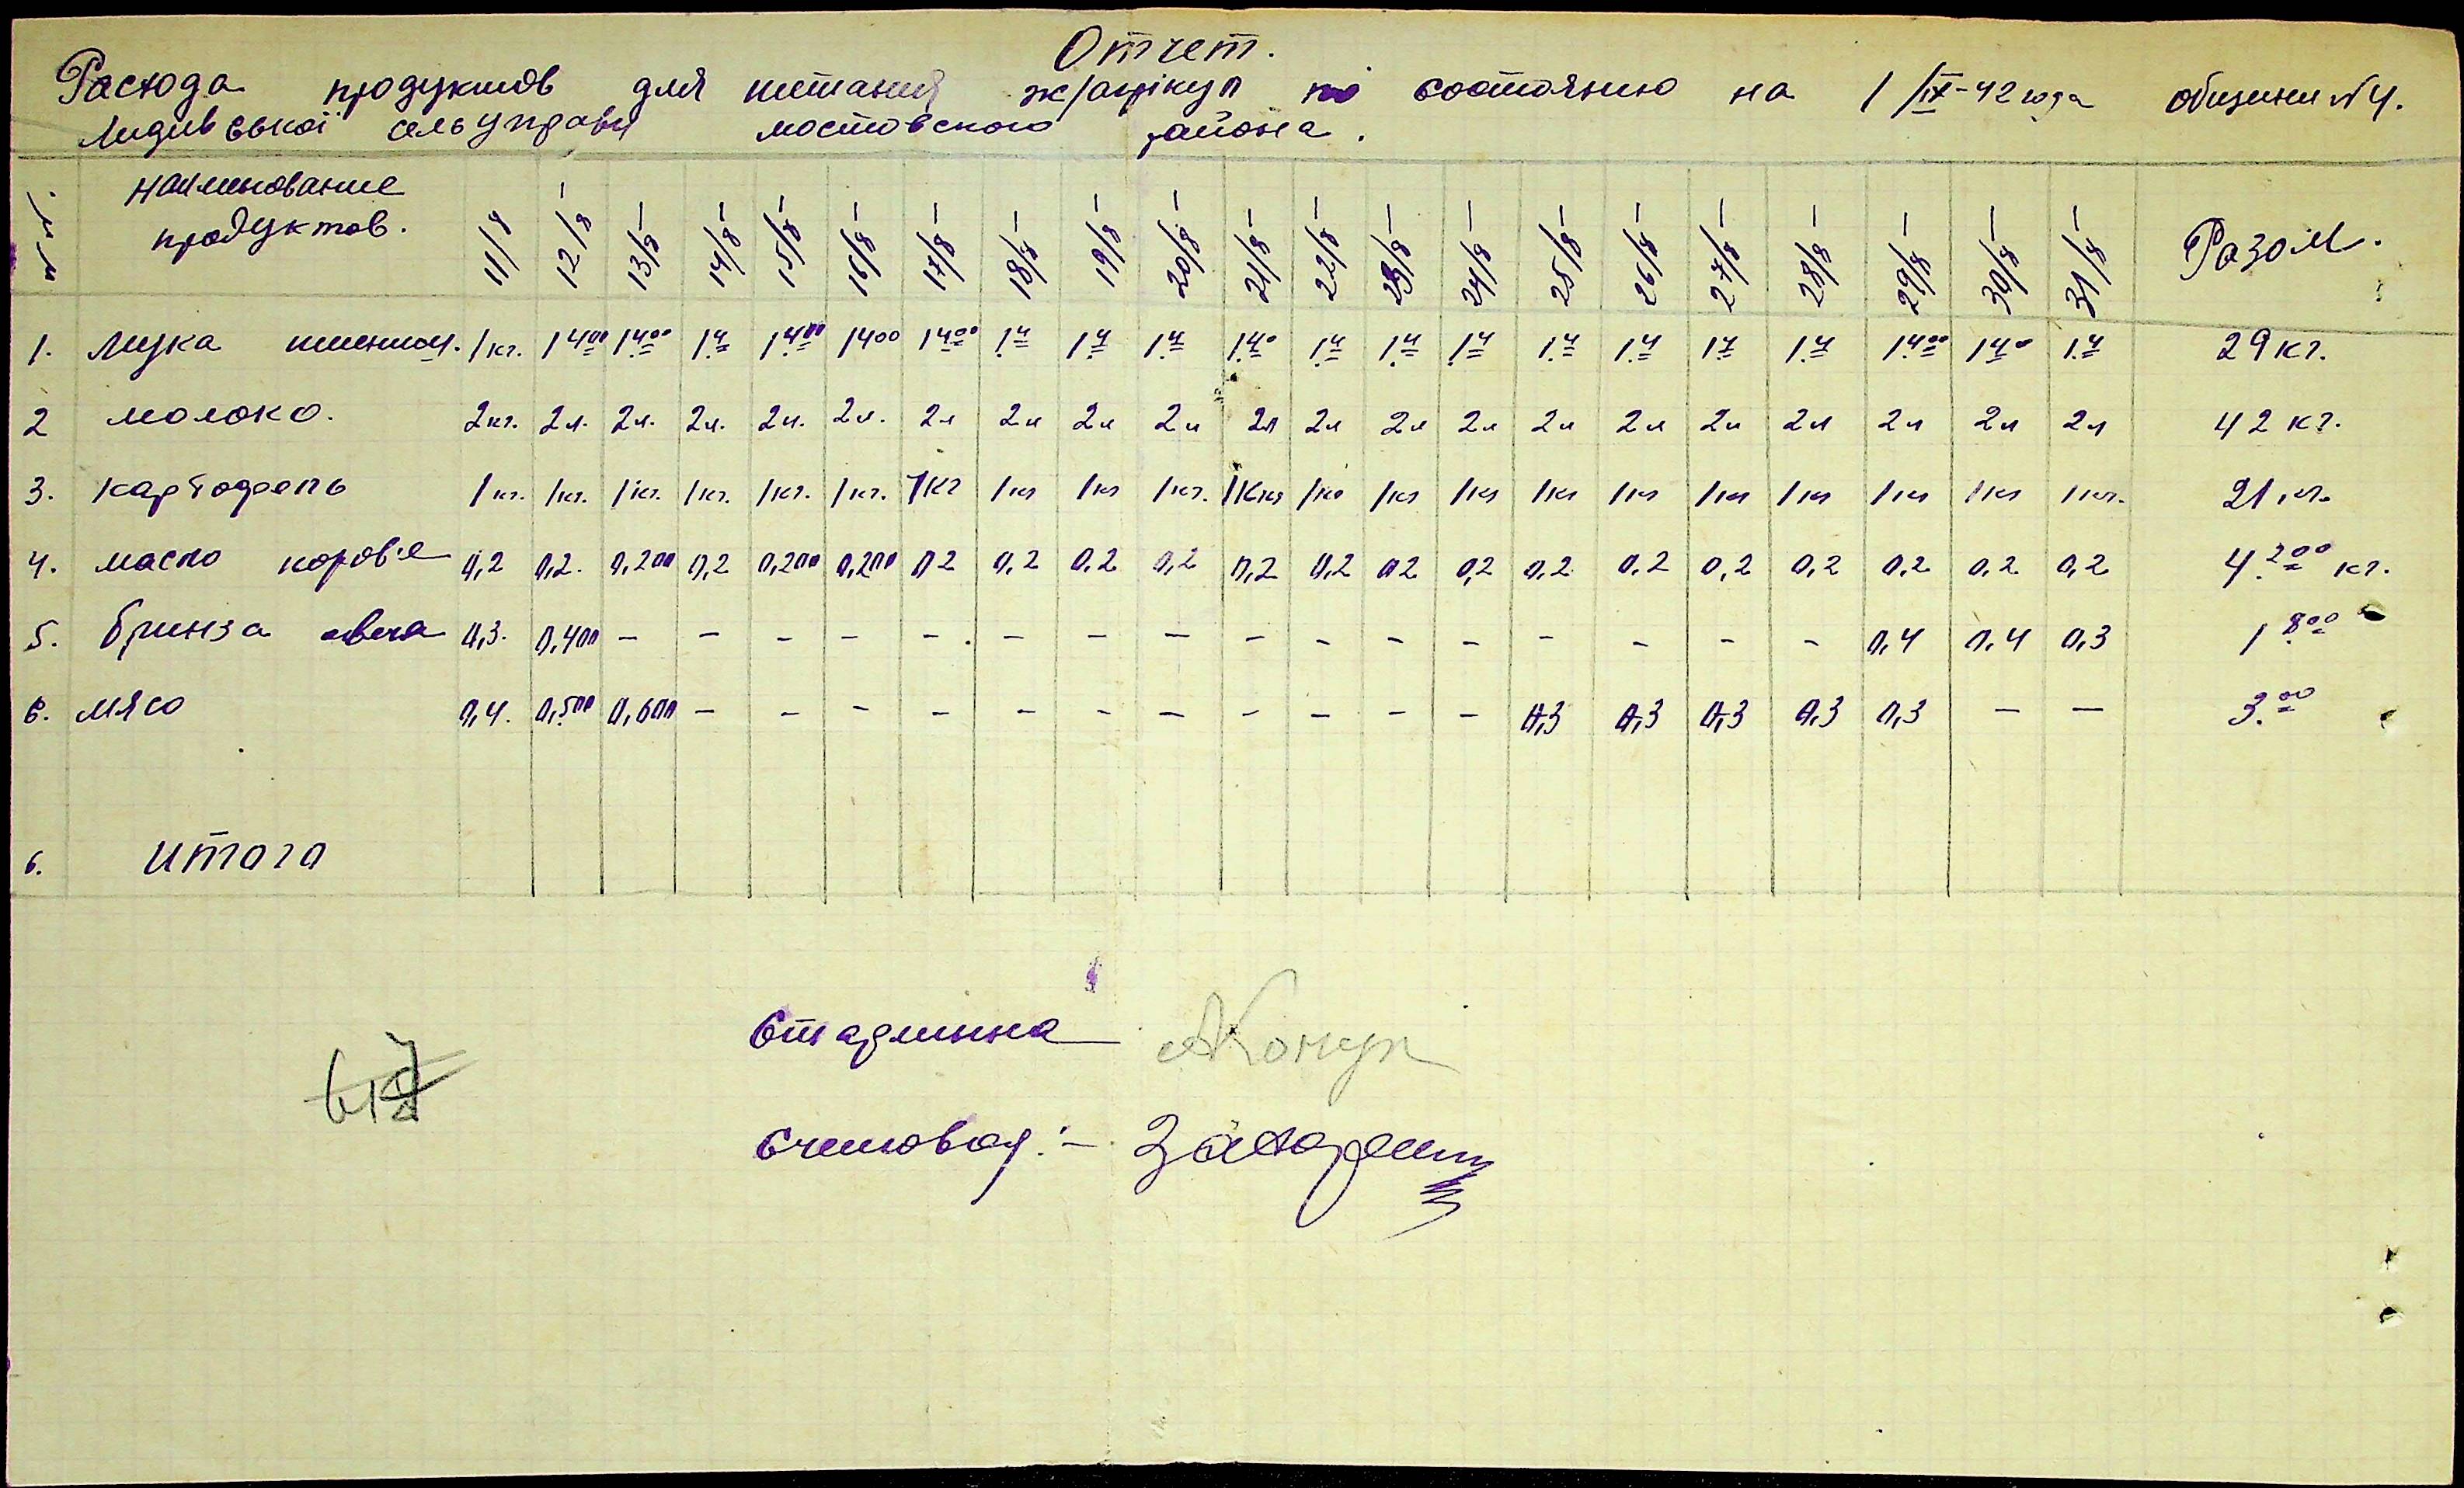 Отчет.
Расхода продуктов для питания по состоянию на 1/IX-42 года общини №4.
сельуправи мостовского района.
наименование
продуктов.
11/8 12/8 13/8 14/8 15/8 16/8 17/8 18/8 19/8 20/8 21/8 22/8 23/8 24/8 25/8 26/8 27/8 28/8 29/8 30/8 31/8 Разом.
1. мука пшеничн. 1кг. 1400 1.400 1.4 1.400 1400 1400 1.4 1.4 1.4 1.40 1.4 1.4 1.4 1.4 1.4 14 1.4 1.400 140 1.4 29 кг.
2 молоко. 2кг. 2л. 2л. 2л. 2л. 2л. 2л 2л 2л 2л 2л 2л 2л 2л 2л 2л 2л 2л 2л 2л 2л 42 кг.
3. картофель 1кг. 1кг. 1кг. 1кг. 1кг. 1кг. 1кг 1кг 1кг 1кг. 1кг 1кг 1кг 1кг 1кг 1кг 1кг 1кг 1кг 1кг 1кг. 21 кг.
4. масло коров'е 0,2 0,2. 0,200 0,2 0,200 0,200 0,2 0,2 0,2 0,2 0,2 0,2 0,2 0,2 0,2 0,2 0,2 0,2 0,2 0,2 0,2 4.200 кг.
5. бринза овеча 0,3. 0,400 - - - - - - - - - - - - - - - - 0,4 0,4 0,3 1.800
6. мясо 0,4. 0,500 0,600 - - - - - - - - - - - 0,3 0,3 0,3 0,3 0,3 - - 3.00
6. Итого
Старшина
Счетовод:-